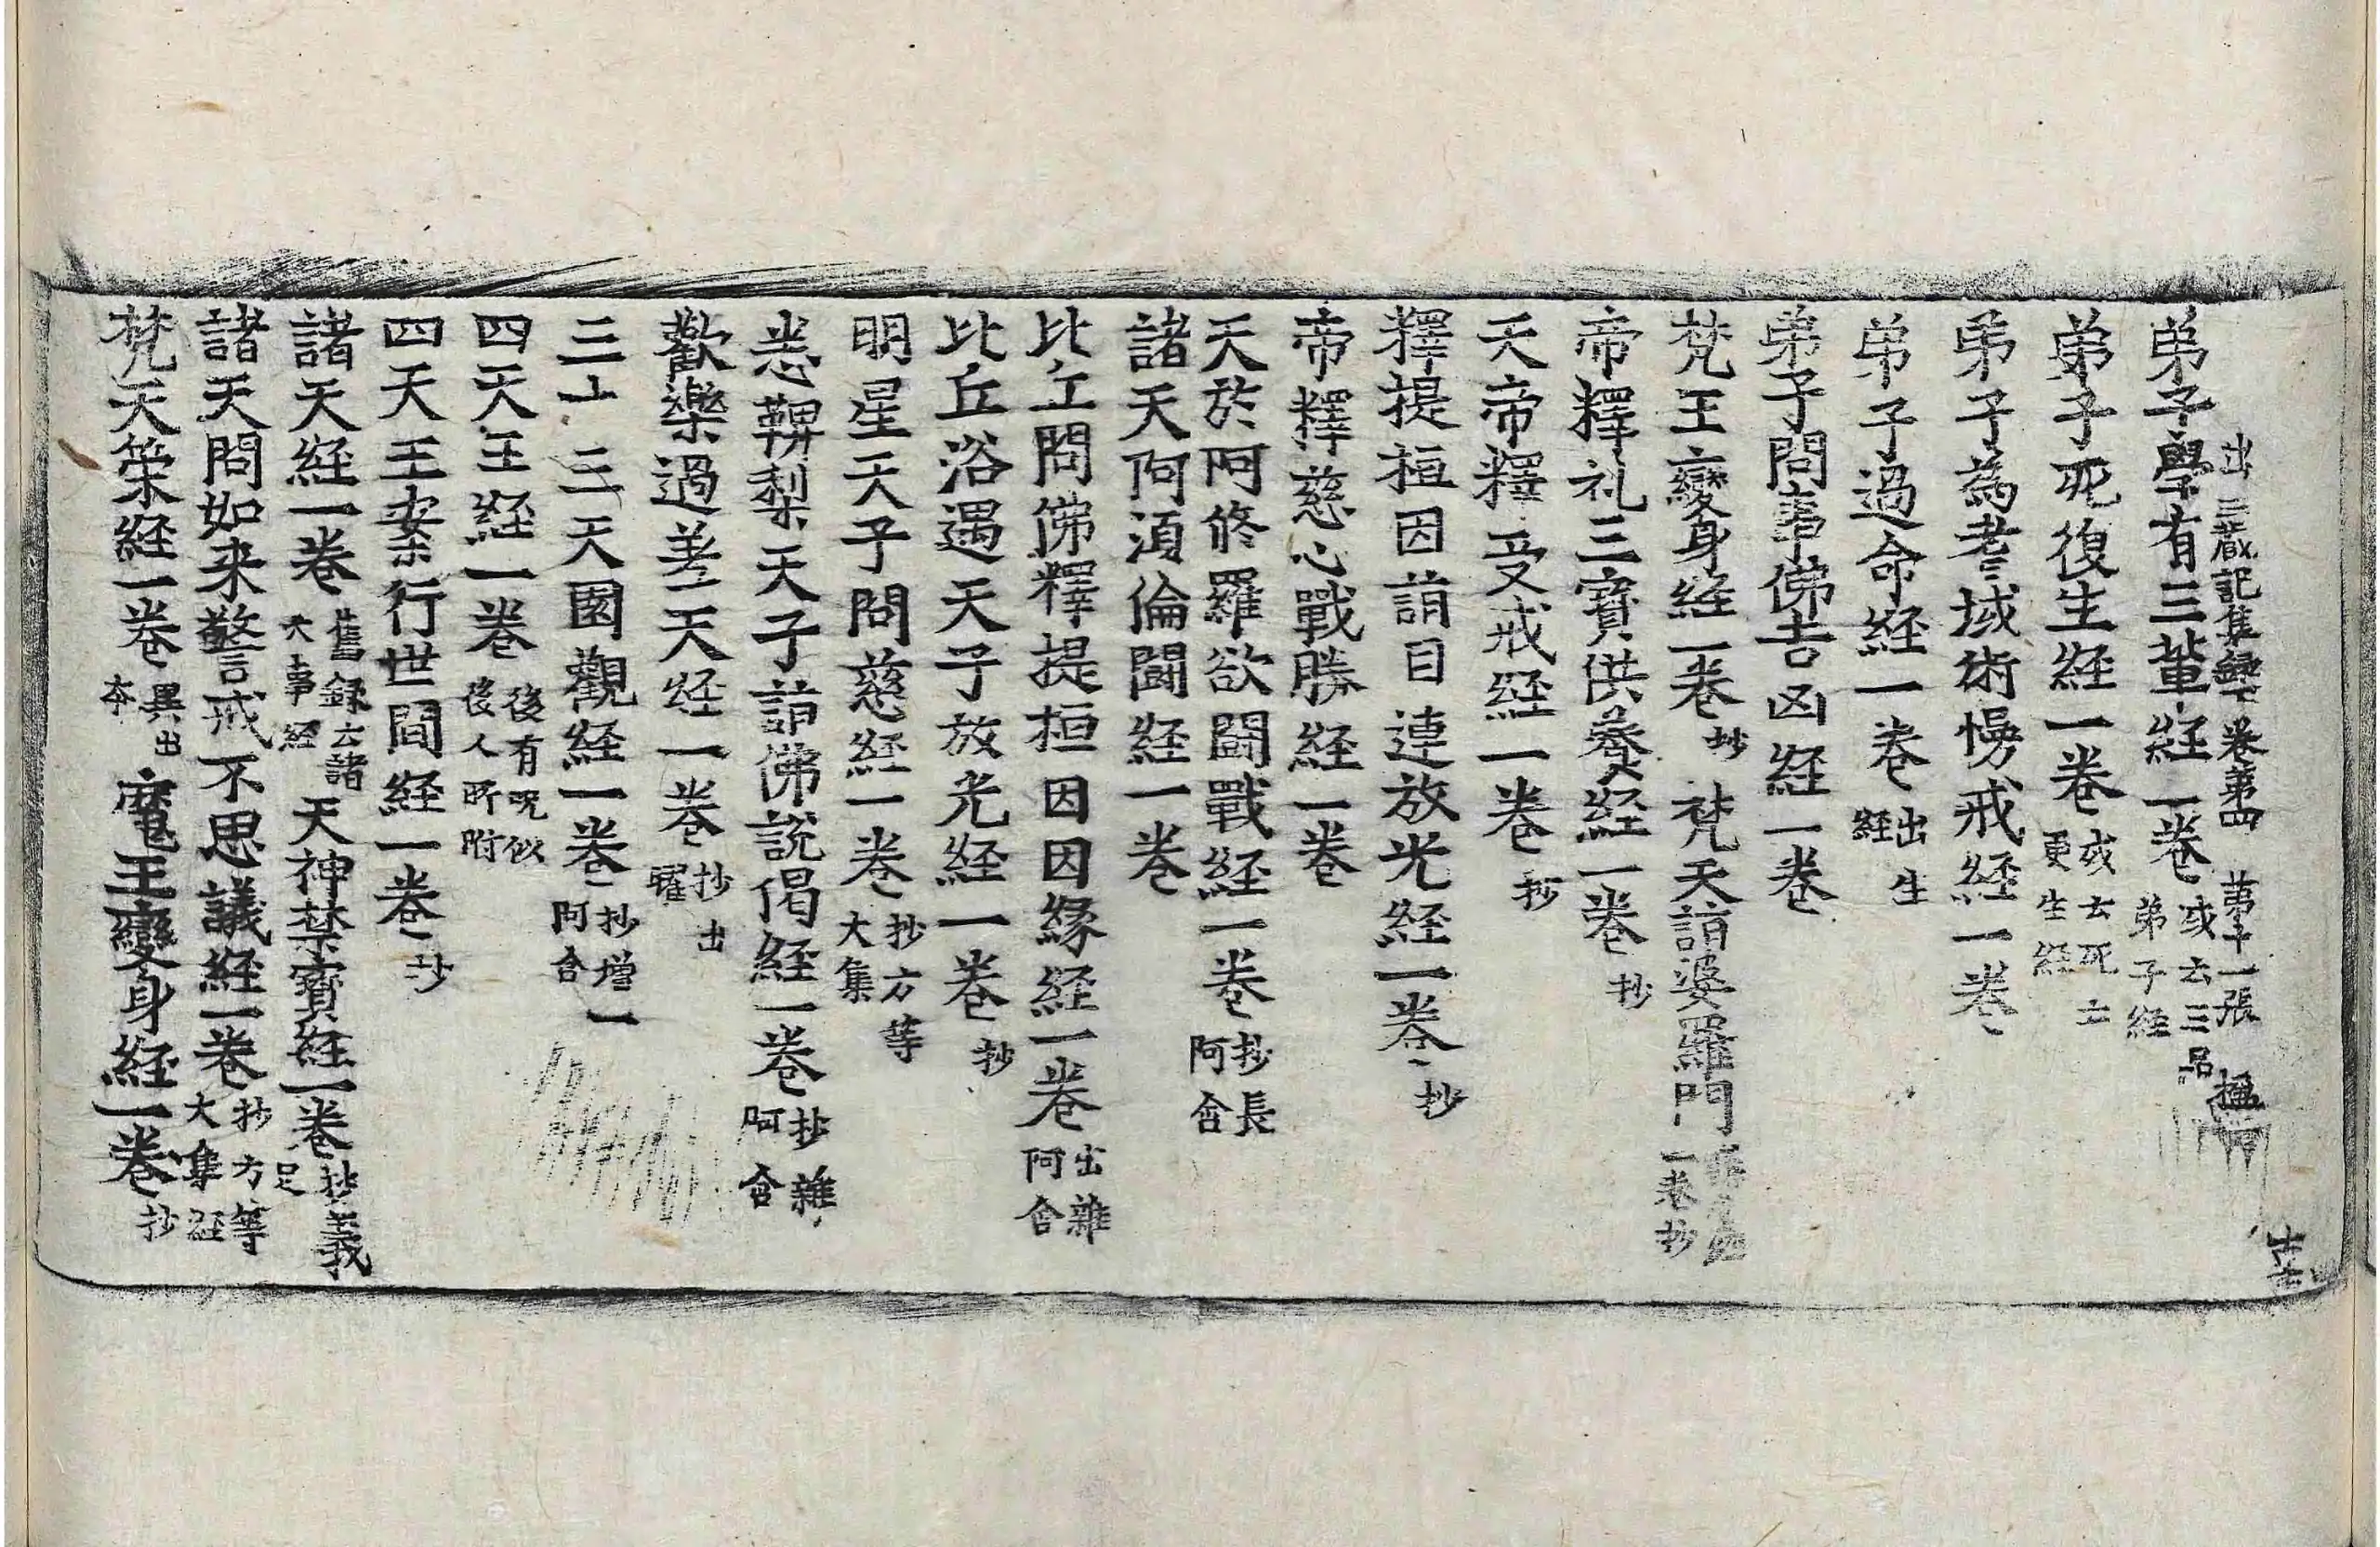 出三藏記集錄下卷第四 第十一張 楹
弟子學有三輩経一卷 或云三品弟子経
弟子死復生経一卷 或云死亡更生経
弟子為耆域術慢戒経一卷
弟子過命経一卷 出生経
弟子問事佛吉凶経一卷
梵王變身経一卷 抄 梵天請婆羅門 一卷抄
帝釋礼三寶供養経一卷 抄
天帝釋受戒経一卷 抄
釋提桓因請目連放光経一卷 抄
帝釋慈心戰勝経一卷
天於阿修羅欲鬪戰経一卷 抄長阿含
諸天阿須倫鬪経一卷
比丘問佛釋提桓因因縁経一卷 出雜阿含
比丘浴遇天子放光経一卷 抄
明星天子問慈経一卷 抄方等大集
悉鞞梨天子請佛說偈経一卷 抄雜阿含
歡樂過差天経一卷 抄出曜
三十三天園觀経一卷 抄增一阿含
四天王経一卷 後有呪似後人所附
四天王案行世間経一卷 抄
諸天経一卷 舊録云諸天事経 天神禁寶経一卷 抄義足
諸天問如来警戒不思議経一卷 抄方等大集経
梵天策経一卷 異出本 魔王變身経一卷 抄